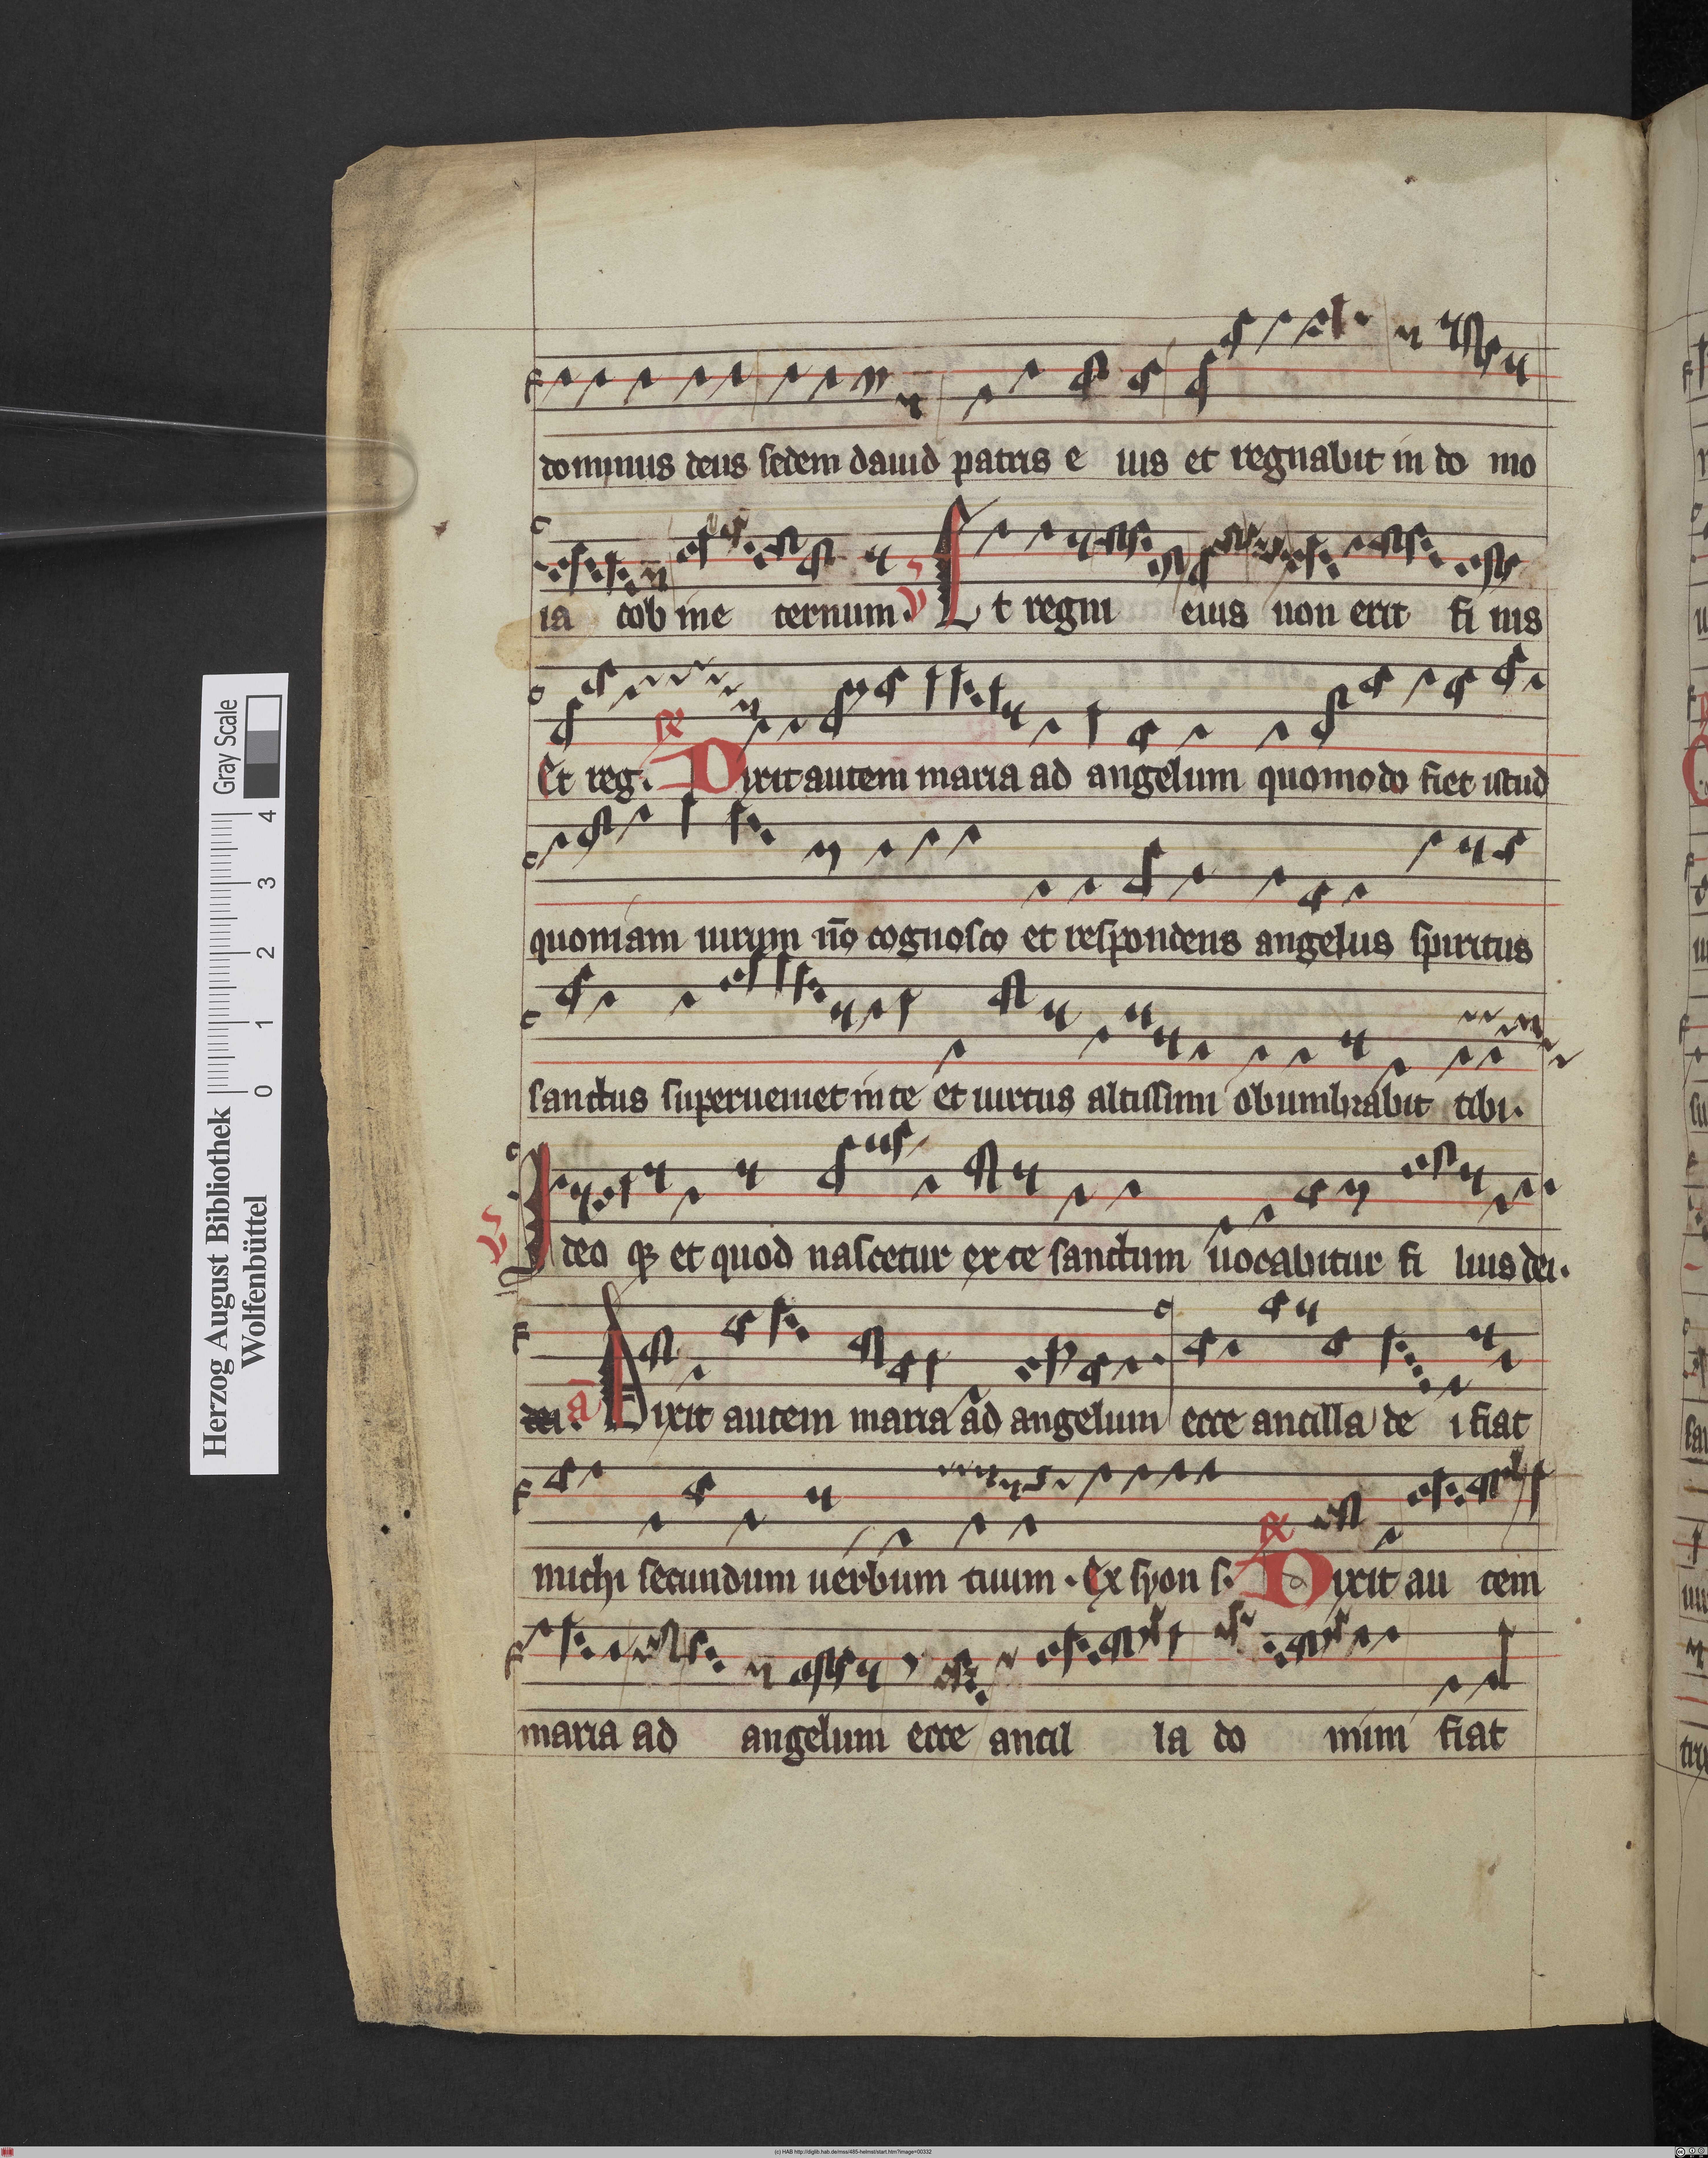 dominus deus sedem dauid patris e ius et regnabit in do mo
ia cob in e ternum. V Et regni eius non erit fi nis
Et reg. R Dixit autem maria ad angelum quomodo fiet istud
quoniam uirum nō cognosco et respondens angelus spiritus
sanctus superueniet in te et uirtus altissimi obumbrabit tibi.
V Ideo qꝫ et quod nascetur ex te sanctum uocabitur fi lius dei.
dei. ā Dixit autem maria ad angelum ecce ancilla de i fiat
michi secundum uerbum tuum. Ex syon s. R Dixit au tem
maria ad angelum ecce ancil la do mini fiat
Herzog August Bibliothek
Wolfenbüttel
0 1 2 3 4
Gray Scale
(c) HAB http://diglib.hab.de/mss/485-helmst/start.htm?image=00332